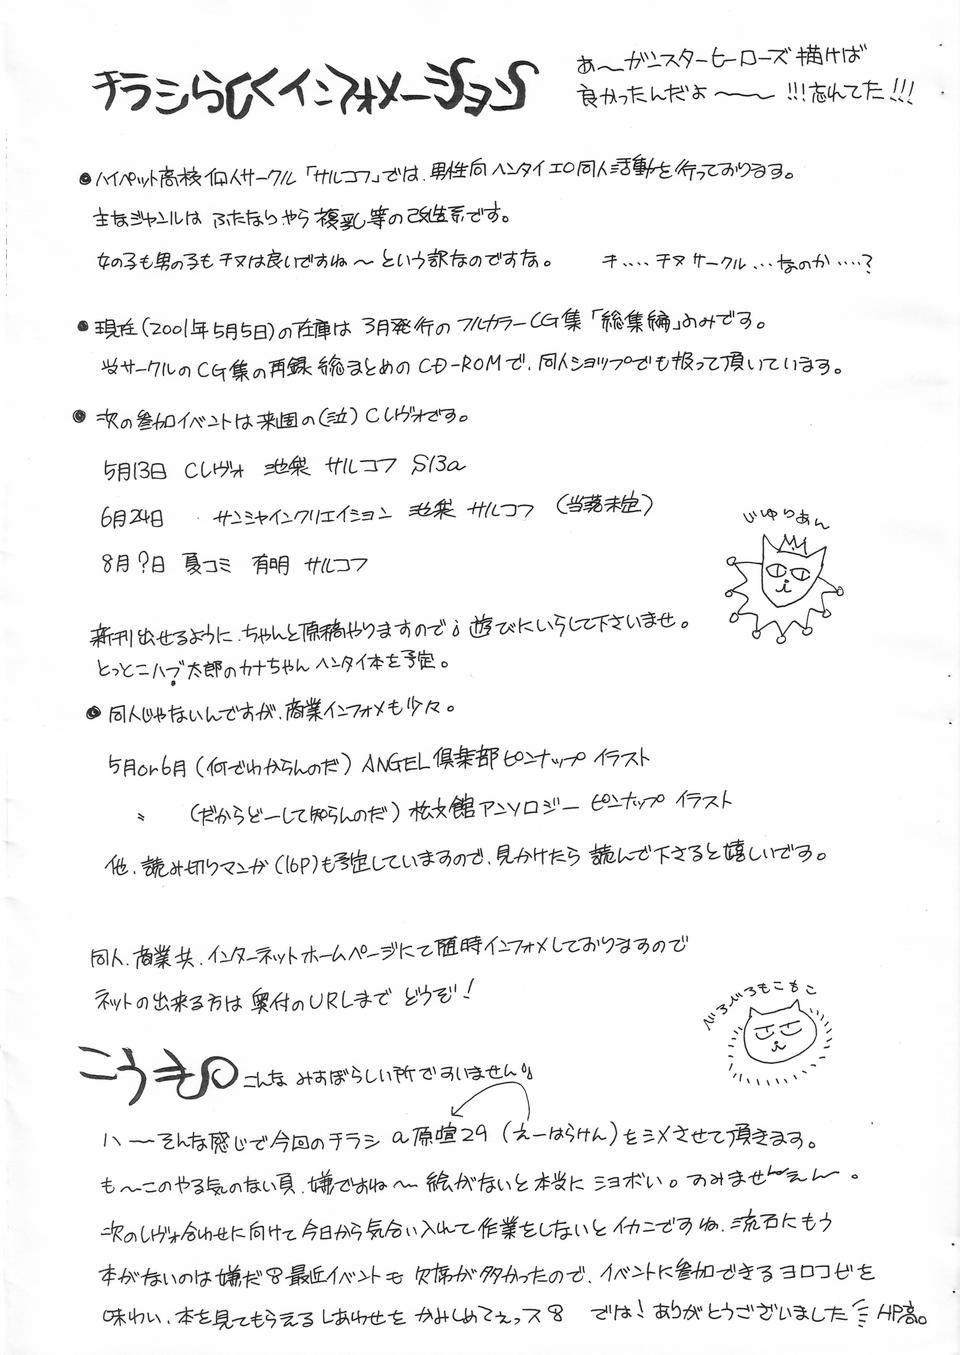 チラシらしくインフォメーション
あ〜ガニスターヒーローズ描けば
良かったんだよ〜〜!!!忘れてた!!!
●ハイペット高校個人サークル「サルコフ」では、男性向ヘンタイエロ同人活動を行っております。
主なジャンルは ふたなりやら複乳等の改造系です。
女の子も男の子もチヌは良いですね〜という訳なのですな。 チ‥‥チヌサークル…なのか‥‥?
●現在(2001年5月5日)の在庫は 3月発行の フルカラーCG集「総集編」のみです。
当サークルのCG集の再録総まとめのCD-ROMで、同人ショップでも扱って頂いています。
●次の参加イベントは来週の(泣)Cレヴォです。
5月13日 Cレヴォ 池袋 サルコフ S13a
6月24日 サンシャインクリエイション 池袋 サルコフ (当落未定)
8月?日 夏コミ 有明 サルコフ
じゅりあん
新刊出せるように、ちゃんと原稿やりますので、遊びにいらして下さいませ。
とっとこハブ太郎のカナちゃん ヘンタイ本を予定。
●同人じゃないんですが、商業インフォメも少々。
5月or6月(何でわからんのだ)ANGEL倶楽部ピンナップ イラスト
〃 (だからどーして知らんのだ)松文館アンソロジー ピンナップ イラスト
他、読み切りマンガ(16P)も予定していますので、見かけたら 読んで下さると嬉しいです。
同人、商業共、インターネットホームページにて随時インフォメしておりますので
ネットの出来る方は 奥付のURLまで どうぞ!
べろべろもこもこ
こうき
こんな みすぼらしい所ですいません
ハ〜そんな感じで今回のチラシ a原喧29(えーはらけん)をシメさせて頂きます。
も〜このやる気のない頁、嫌ですね〜 絵がないと本当に ショボい。すみませ〜ん〜。
次のレヴォ合わせに向けて今日から気合い入れて作業をしないとイカンですね、流石にもう
本がないのは嫌だ 最近イベントも 欠席が多かったので、イベントに参加できるヨロコビを
味わい、本を見てもらえるしあわせを かみしめてぇっス では!ありがとうございました HP高。